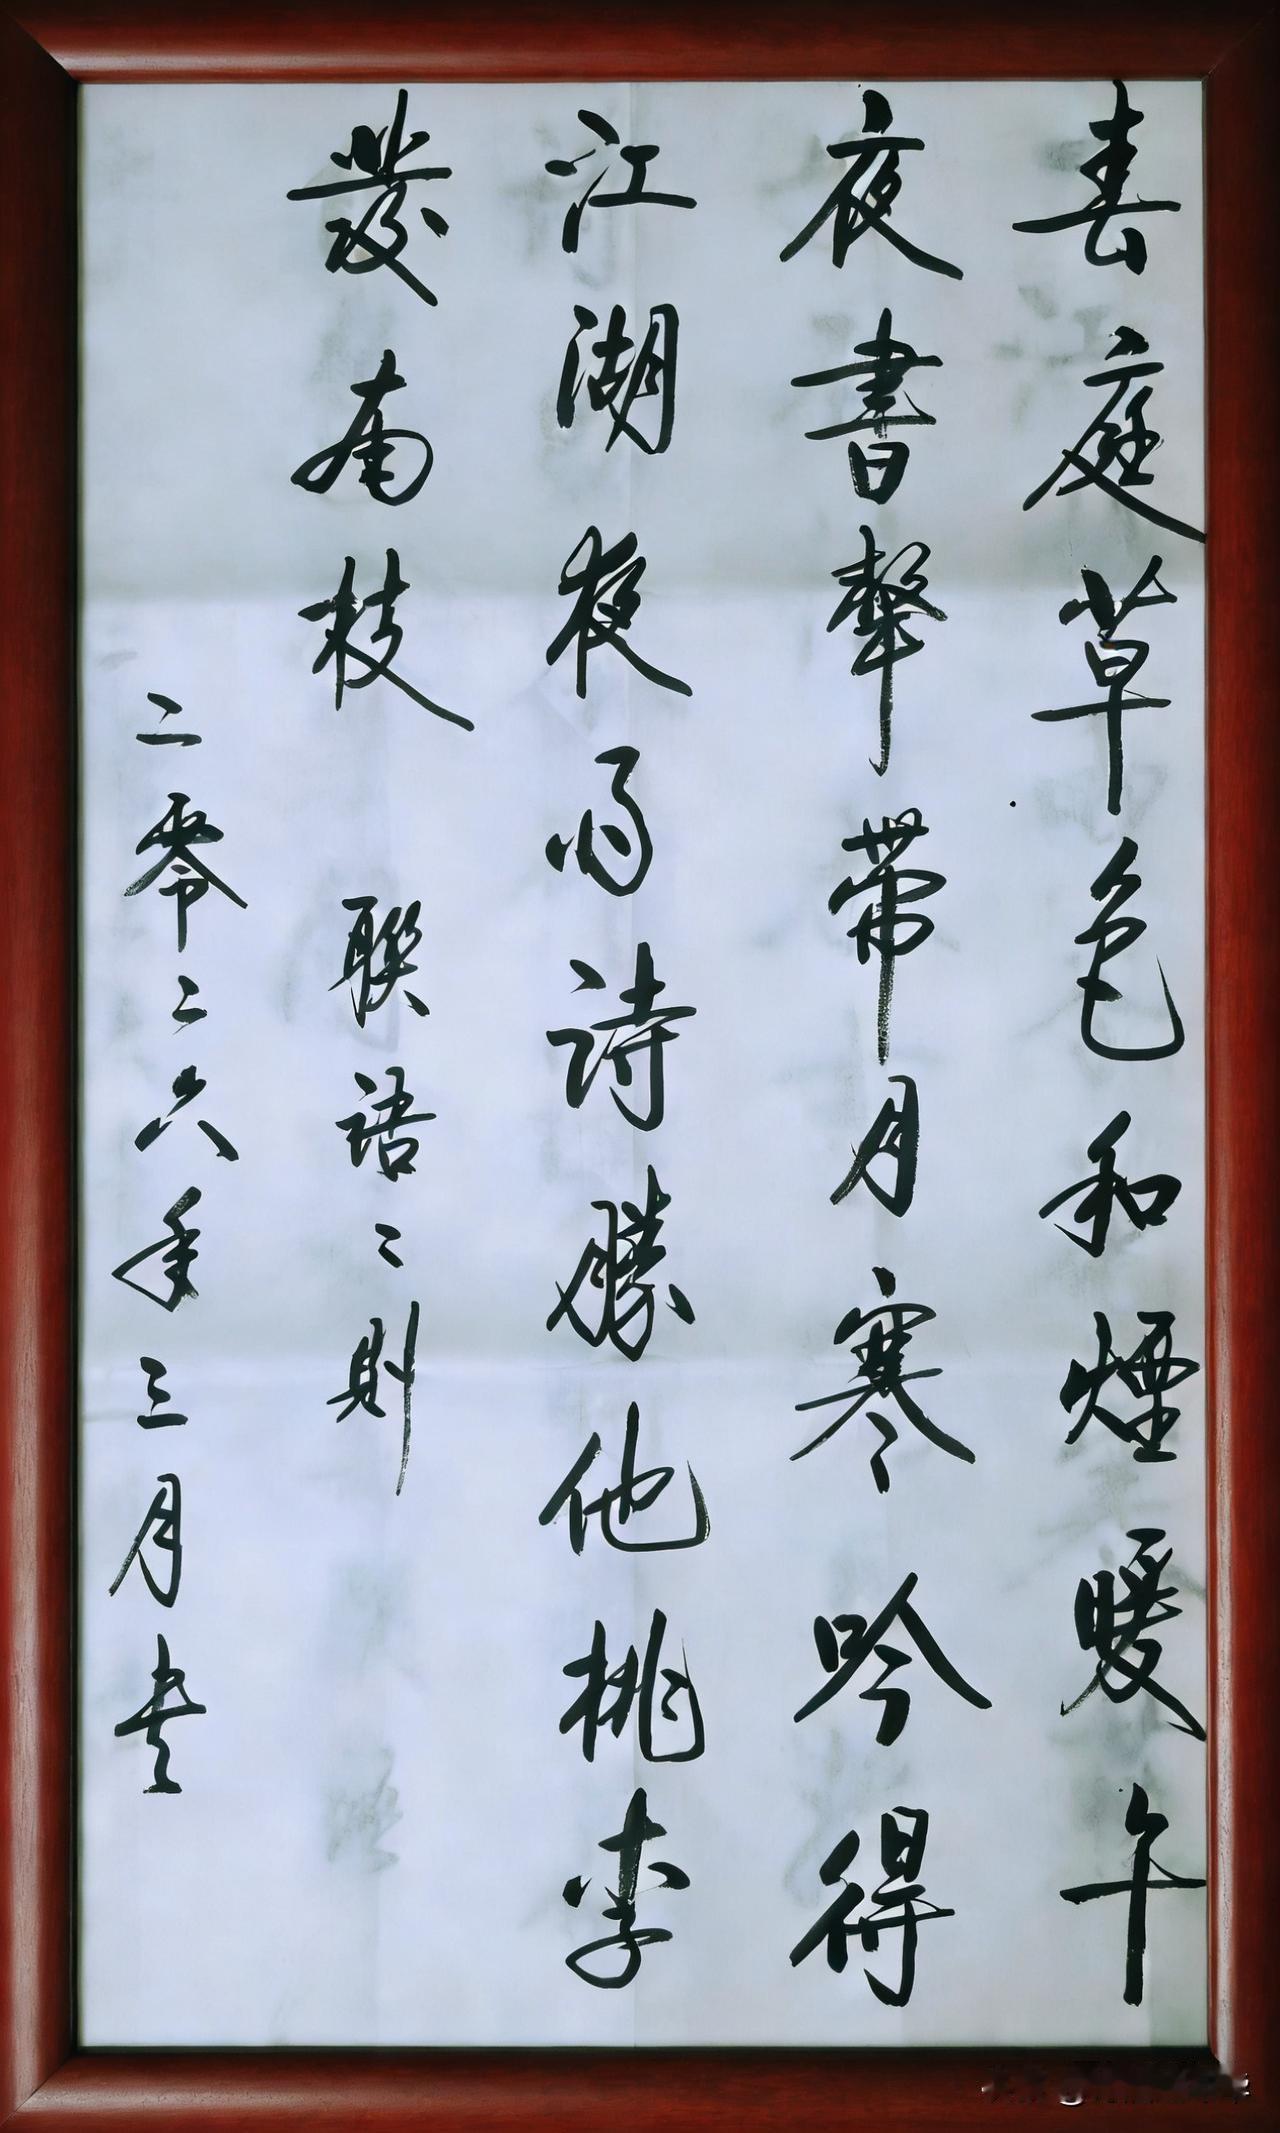 春庭草色和煙暖午
夜書聲帶月寒吟得
江湖夜雨詩勝他桃李
發南枝 聯語二則
二零二六年三月書